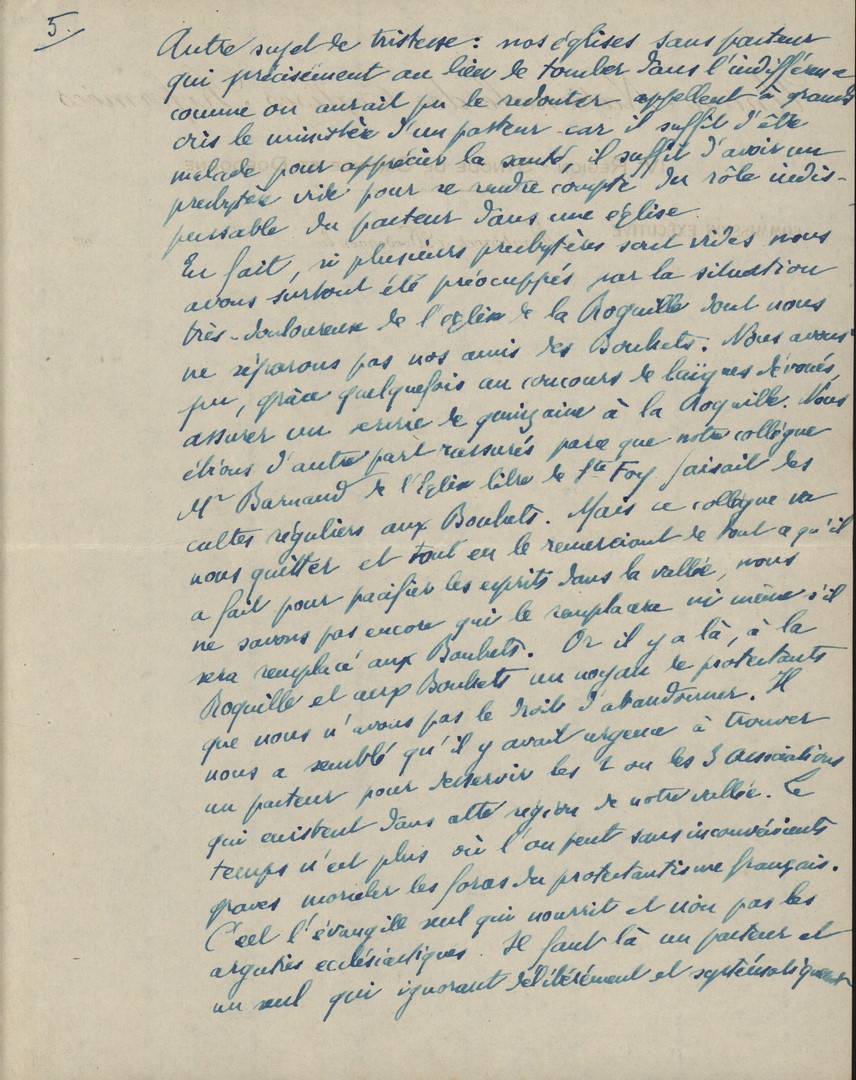 5.
Autre sujet de tristesse : nos églises sans pasteur
qui précisément au lieu de tomber dans l'indifférence
comme on aurait pu le redouter appellent à grands
cris le ministère d'un pasteur car il suffit d'être
malade pour apprécier la santé, il suffit d'avoir un
presbytère vide pour se rendre compte du rôle indis-
pensable du pasteur dans une église.
En fait, si plusieurs presbytères sont vides nous
avons surtout été préoccupés par la situation
très-douloureuse de l'église de la Roquille dont nous
ne séparons pas nos amis des Bouhets. Nous avons
pu, grâce quelquefois au concours de laïques dévoués,
assurer un service de quinzaine à la Roquille. Nous
étions d'autre part rassurés parce que notre collègue
Mr Barnaud de l'Eglise libre de Ste Foy faisait des
cultes réguliers aux Bouhets. Mais ce collègue va
nous quitter et tout en le remerciant de tout ce qu'il
a fait pour pacifier les esprits dans la vallée, nous
ne savons pas encore qui le remplacera ni même s'il
sera remplacé aux Bouhets. Or il y a là, à la
Roquille et aux Bouhets un noyau de protestants
que nous n'avons pas le droit d'abandonner. Il
nous a semblé qu'il y avait urgence à trouver
un pasteur pour desservir les 2 ou les 3 associations
qui existent dans cette région de notre vallée. Le
temps n'est plus où l'on peut sans inconvénients
graves morceler les forces du protestantisme français.
C'est l'évangile seul qui nourrit et non pas les
arguties ecclésiastiques. Il faut là un pasteur et
un seul qui ignorant délibérément et systématiquement